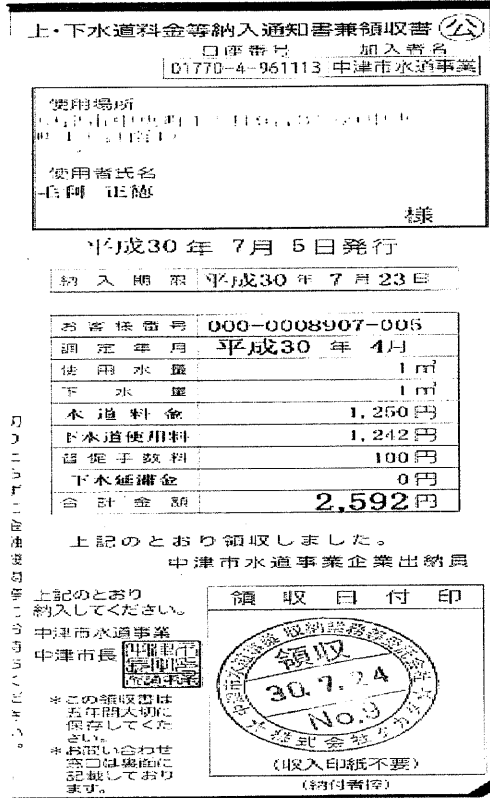 上・下水道料金等納入通知書兼領収書 公
口座番号 加入者名
01770-4-961113 中津市水道事業
使用場所
使用者氏名
毛利 正徳
様
平成30年 7月 5日発行
納入期限 平成30年 7月23日
お客様番号 000-0008907-005
調定年月 平成30 年 4月
使用水量 1㎥
下水量 1㎥
水道料金 1,250円
下水道使用料 1,242円
督促手数料 100円
下水延滞金 0円
合計金額 2,592円
上記のとおり領収しました。
中津市水道事業企業出納員
上記のとおり
納入してください。
中津市水道事業
中津市長
*この領収書は
五年間大切に
保存してくだ
さい。
*お問い合わせ
窓口は裏面に
記載しており
ます。
領収日付印
領収
30.7.24
No.9
(収入印紙不要)
(納付者控)